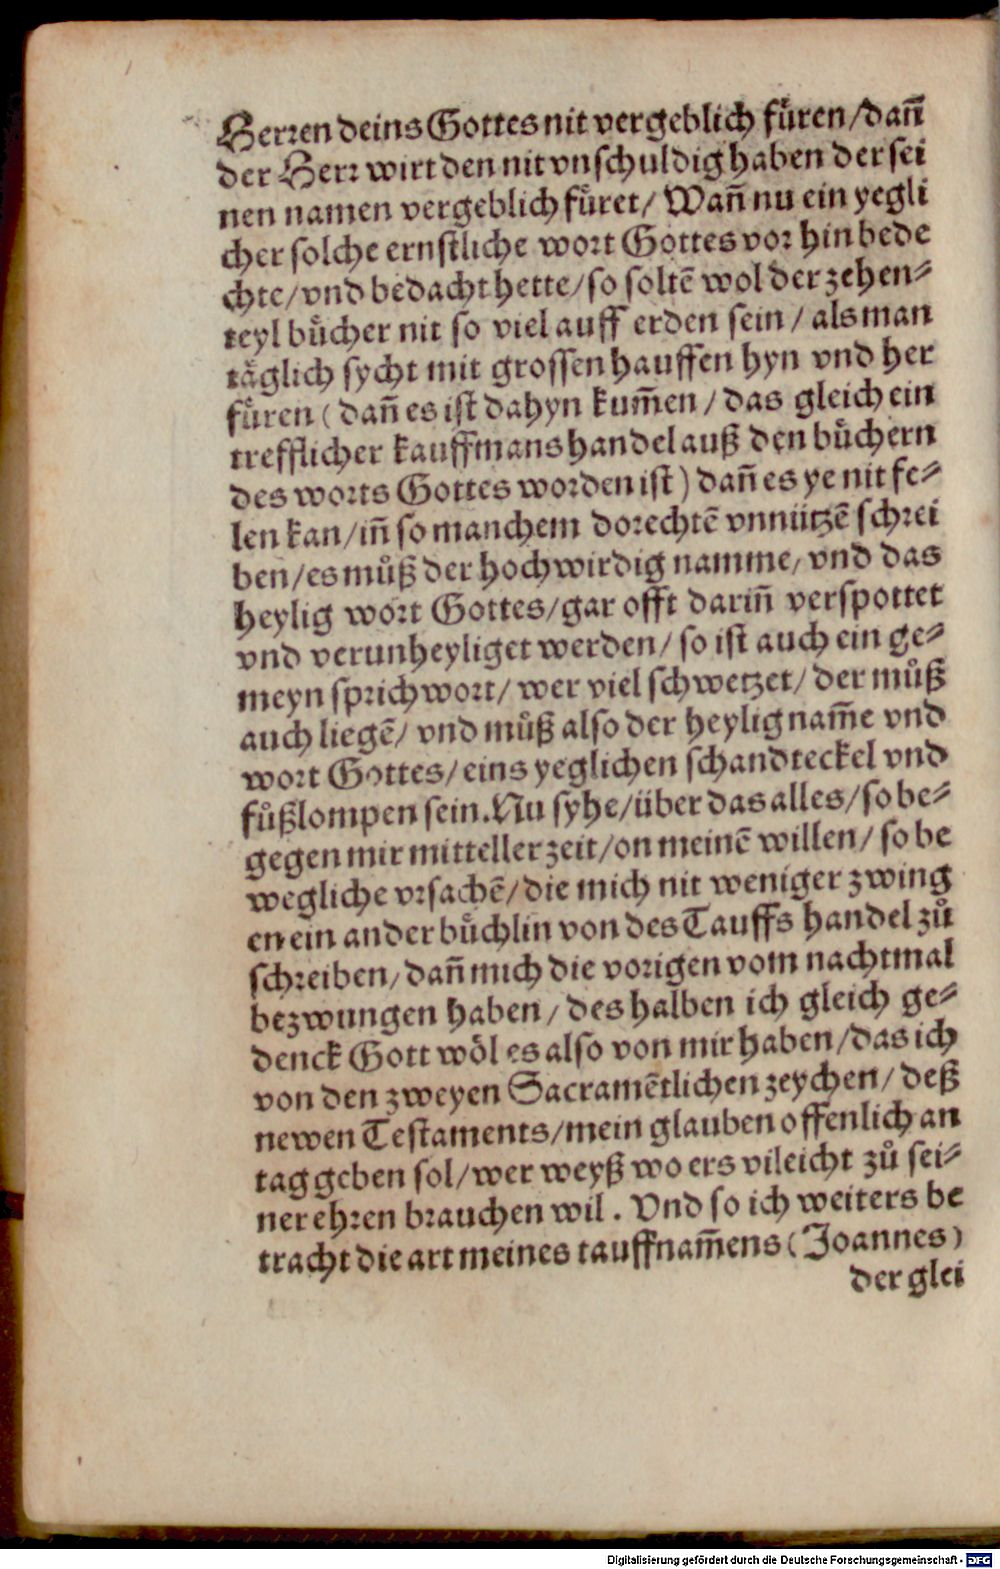 Herren deins Gottes nit vergeblich fuͤren/dañ
der Herr wirt den nit vnschuldig haben der sei
nen namen vergeblich fuͤret/ Wañ nu ein yegli
cher solche ernstliche wort Gottes vor hin bede
chte/vnd bedacht hette/so soltē wol der zehen⸗
teyl buͤcher nit so viel auff erden sein / als man
taͤglich sycht mit grossen hauffen hyn vnd her
fuͤren ( dañ es ist dahyn kum̃en / das gleich ein
trefflicher kauffmans handel auß den buͤchern
des worts Gottes worden ist ) dañ es ye nit fe⸗
len kan/iñ so manchem dorechtē vnnützē schrei
ben/es muͦß der hochwirdig namme, vnd das
heylig wort Gottes/gar offt dariñ verspottet
vnd verunheyliget werden/ so ist auch ein ge⸗
meyn sprichwort/ wer viel schwetzet/ der muͦß
auch liegē/ vnd muͦß also der heylig nam̃e vnd
wort Gottes/eins yeglichen schandteckel vnd
fuͦßlompen sein.Nu syhe/über das alles/so be⸗
gegen mir mitteller zeit/on meinē willen/ so be
wegliche vrsachē/die mich nit weniger zwing
en ein ander buͤchlin von des Tauffs handel zuͦ
schreiben/dañ mich die vorigen vom nachtmal
bezwungen haben / des halben ich gleich ge⸗
denck Gott woͤl es also von mir haben/das ich
von den zweyen Sacramētlichen zeychen/ deß
newen Testaments/mein glauben offenlich an
tag geben sol/wer weyß wo ers vileicht zuͦ sei⸗
ner ehren brauchen wil . Vnd so ich weiters be
tracht die art meines tauffnam̃ens ( Joannes )
der glei
Digitalisierung gefördert durch die Deutsche Forschungsgemeinschaft - DFG